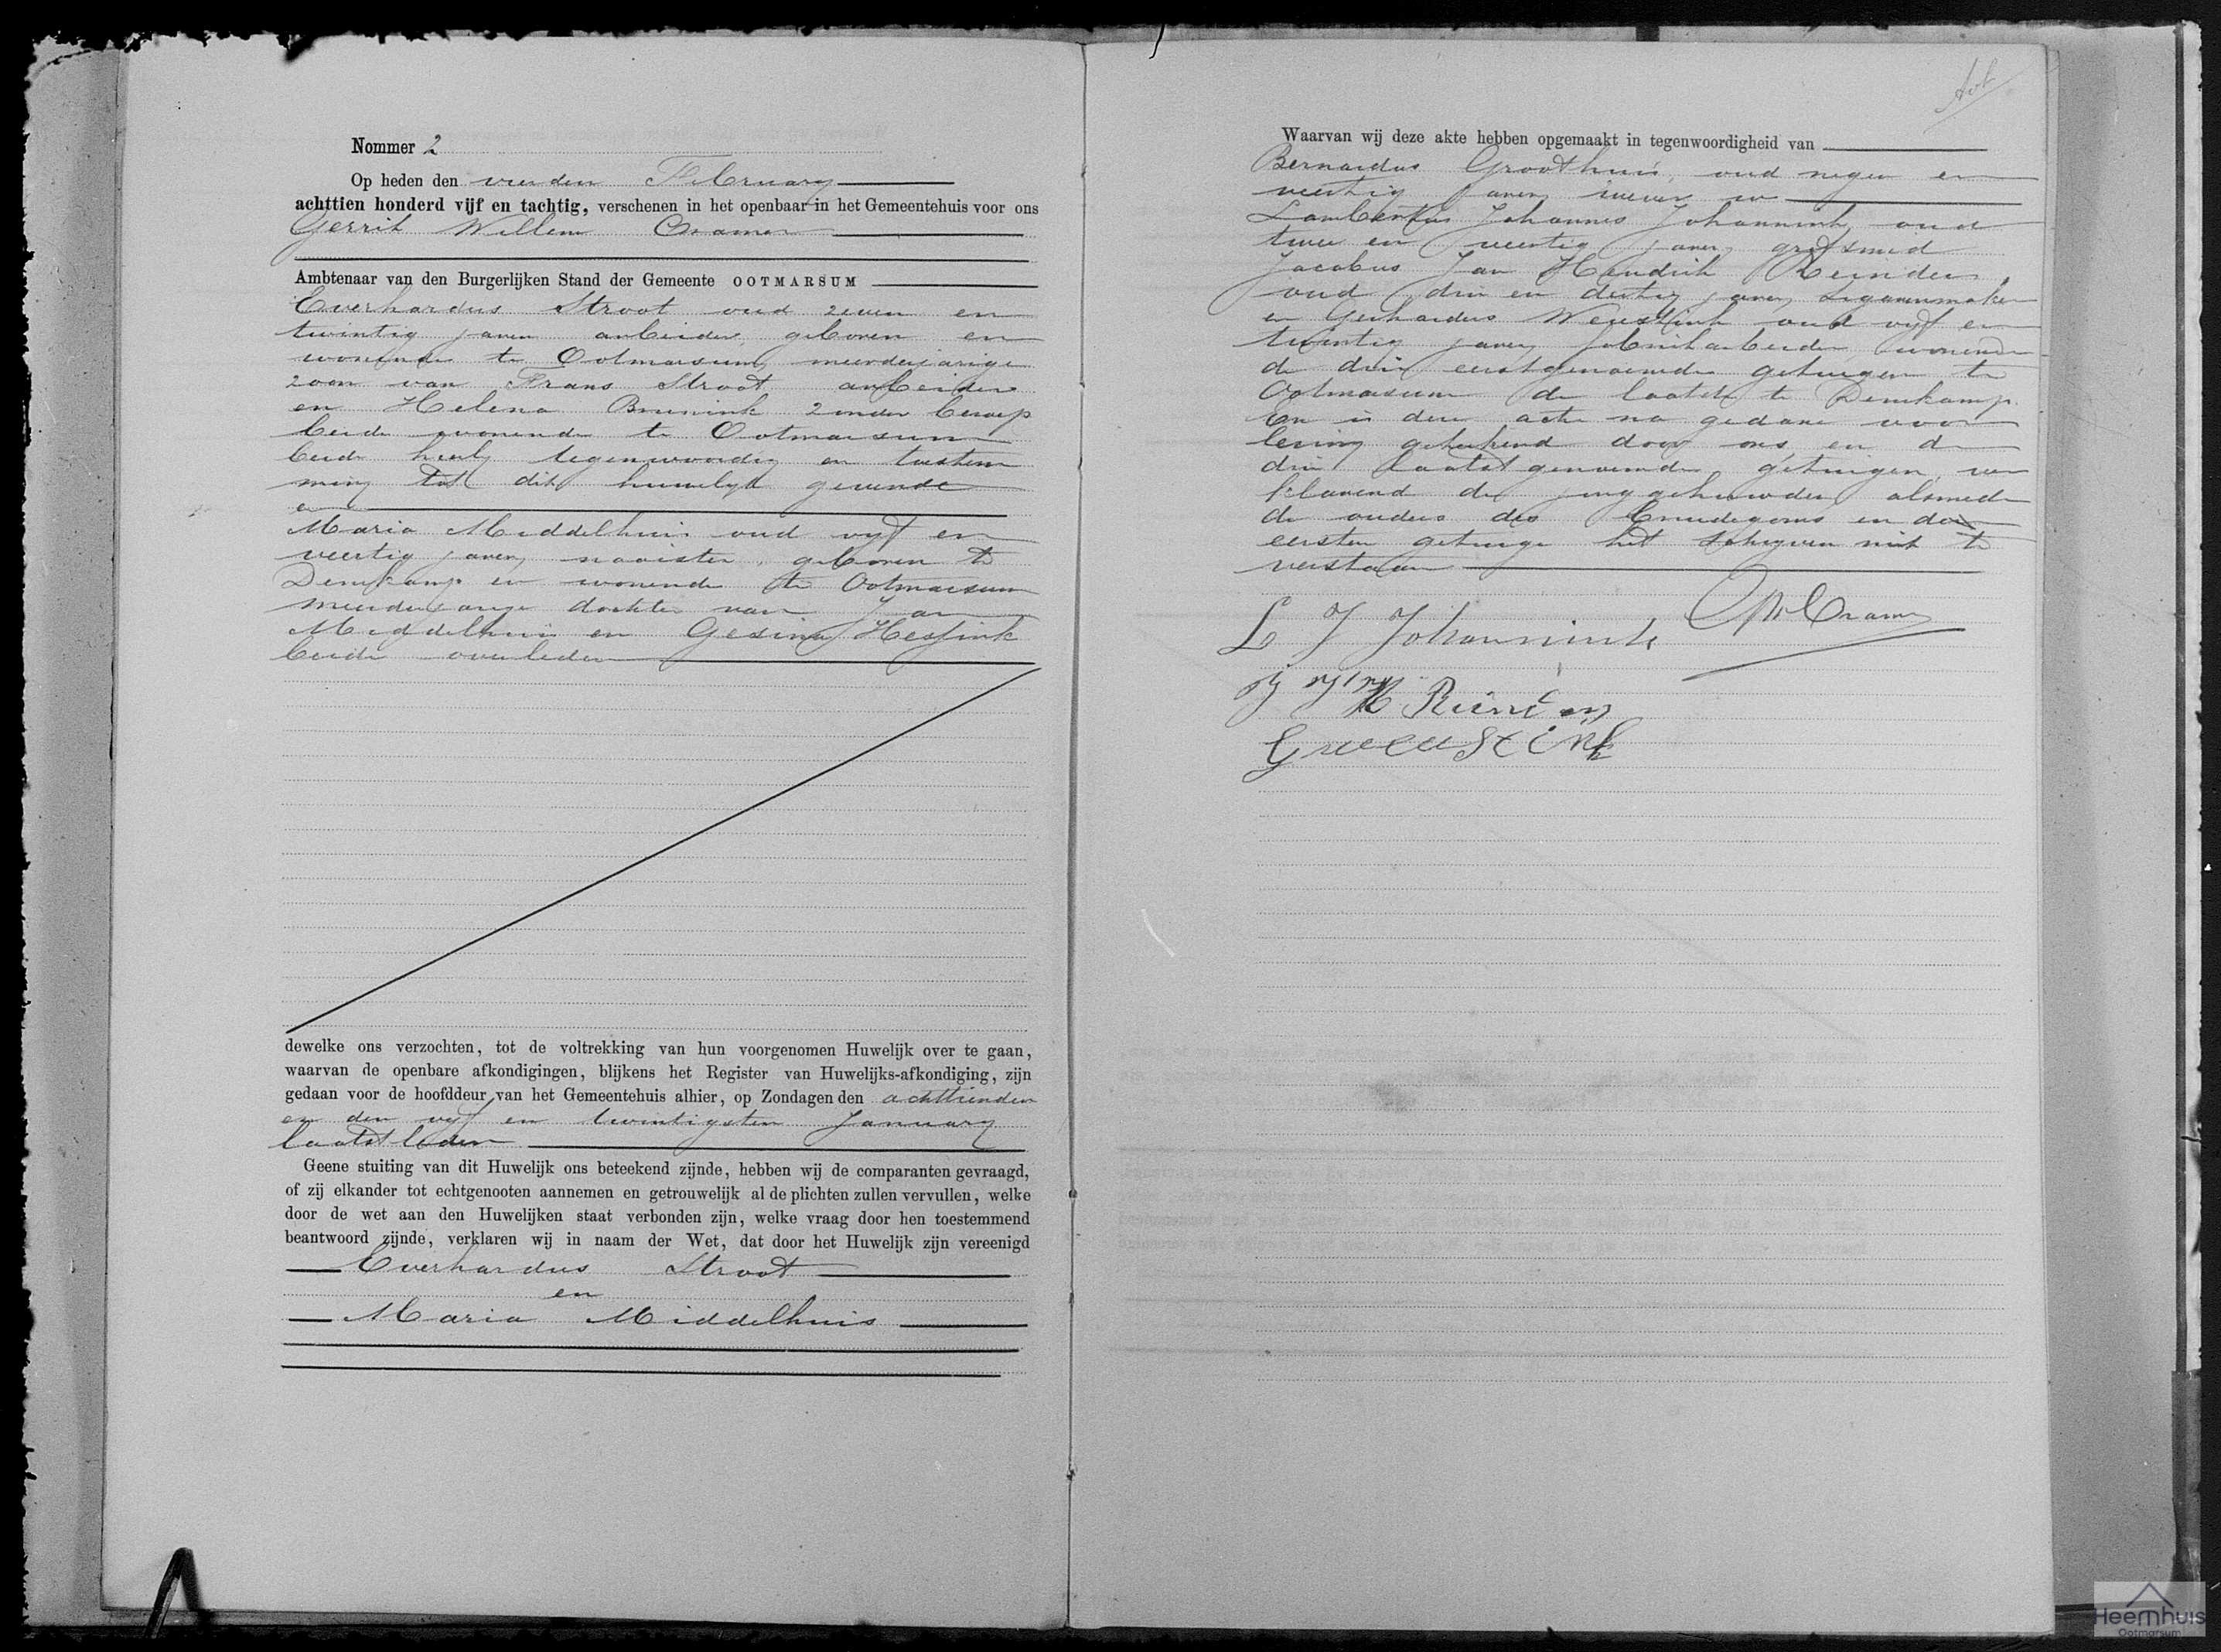 Nommer 2
Op heden den vierden February
achttien honderd vijf en tachtig, verschenen in het openbaar in het Gemeentehuis voor ons
Gerrit Willem Cramer
Ambtenaar van den Burgerlijken Stand der Gemeente OOTMARSUM
Everhardus Stroot oud zeven en
twintig jaren arbeider, geboren en
wonende te Ootmarsum, meerderjarige
zoon van Frans Stroot arbeider
en Helena Brunink zonder beroep
beide wonende te Ootmarsum
beide hierbij tegenwoordig en toestem
ming tot dit huwelijk gevende
en
Maria Middelhuis oud vijf en
veertig jaren, naaister, geboren te
Denekamp en wonende te Ootmarsum
meerderjarige dochter van Jan
Middelhuis en Gesina Hesfink
beide overleden
dewelke ons verzochten, tot de voltrekking van hun voorgenomen Huwelijk over te gaan,
waarvan de openbare afkondigingen, blijkens het Register van Huwelijks-afkondiging, zijn
gedaan voor de hoofddeur van het Gemeentehuis alhier, op Zondagen den achttienden
en den vijf en twintigsten January
laatstleden
Geene stuiting van dit Huwelijk ons beteekend zijnde, hebben wij de comparanten gevraagd,
of zij elkander tot echtgenooten aannemen en getrouwelijk al de plichten zullen vervullen, welke
door de wet aan den Huwelijken staat verbonden zijn, welke vraag door hen toestemmend
beantwoord zijnde, verklaren wij in naam der Wet, dat door het Huwelijk zijn vereenigd
Everhardus Stroot
en
Maria Middelhuis
Waarvan wij deze akte hebben opgemaakt in tegenwoordigheid van
Bernardus Groothuis, oud negen en
veertig jaren, wever en
Lambertus Johannes Johannink, oud
twee en veertig jaren, grofsmid
Jacobus Jan Hendrik Reinders
oud drie en dertig jaren, sigarenmaker
en Gerhardus Weustink oud vijf en
twintig jaren, fabriekarbeider wonende
de drie eerstgenoemde getuigen te
Ootmarsum de laatste te Denekamp.
En is deze acte na gedane voor
lezing geteekend door ons, en de
drie laatstgenoemde getuigen, ver
klarend de jonggehuwden alsmede
de ouders des bruidegoms en de
eersten getuige het schrijven niet te
verstaan
GW Cramer
L J Johannink
J J H Reinders
G Weustink
Heemhuis
Ootmarsum